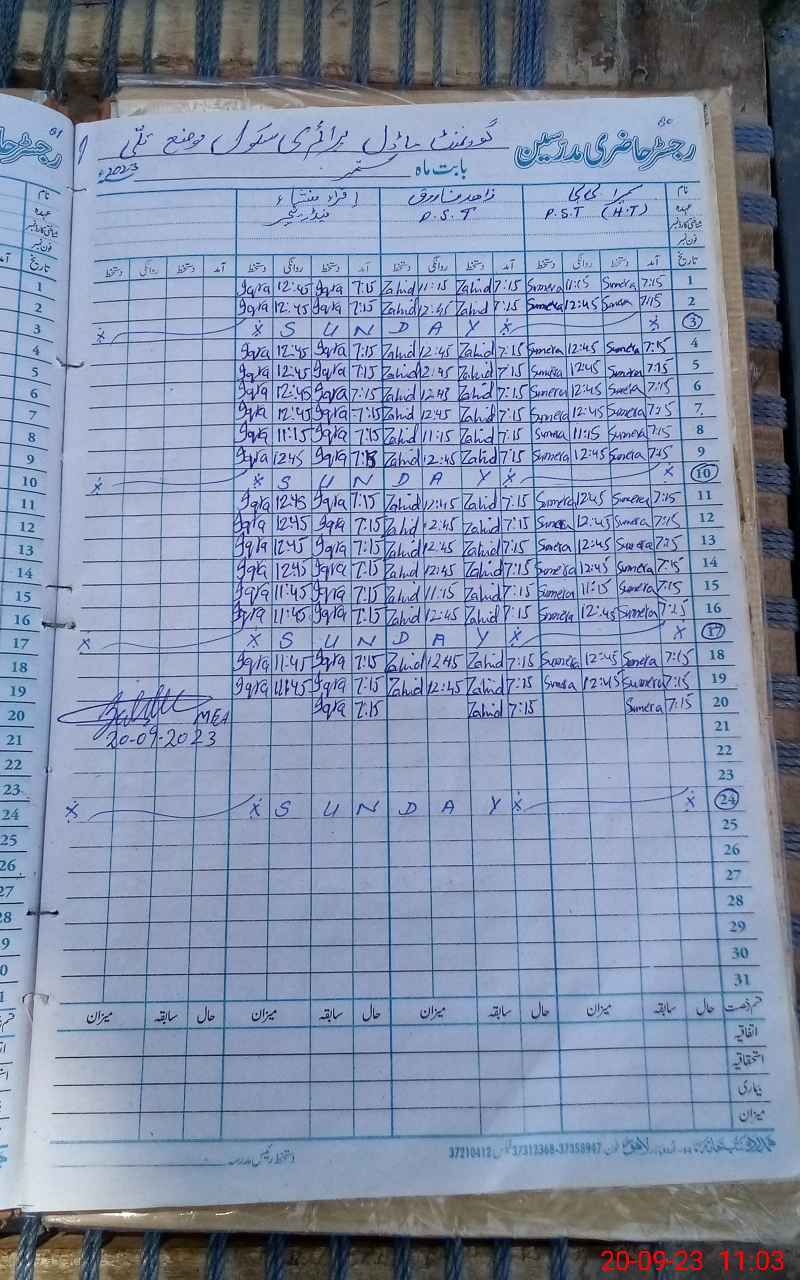 80
رجسٹر حاضری مدرسین گورنمنٹ ماڈل پرائمری سکول موضع تلی
بابت ماہ ستمبر 2023ء
نام سمیرا زاہد فاروق اقراء
عہدہ P.S.T (H.T) P.S.T
فون نمبر
تاریخ آمد دستخط روانگی دستخط آمد دستخط روانگی دستخط آمد دستخط روانگی دستخط آمد دستخط روانگی دستخط
Iqra 12:45 Iqra 7:15 Zahid 11:15 Zahid 7:15 Sumera 11:15 Sumera 7:15 1
Iqra 12:45 Iqra 7:15 Zahid 12:45 Zahid 7:15 Sumera 12:45 Sumera 7:15 2
x x S U N D A Y x x 3
Iqra 12:45 Iqra 7:15 Zahid 12:45 Zahid 7:15 Sumera 12:45 Sumera 7:15 4
Iqra 12:45 Iqra 7:15 Zahid 12:45 Zahid 7:15 Sumera 12:45 Sumera 7:15 5
Iqra 12:45 Iqra 7:15 Zahid 12:45 Zahid 7:15 Sumera 12:45 Sumera 7:15 6
Iqra 12:45 Iqra 7:15 Zahid 12:45 Zahid 7:15 Sumera 12:45 Sumera 7:15 7
Iqra 11:15 Iqra 7:15 Zahid 11:15 Zahid 7:15 Sumera 11:15 Sumera 7:15 8
Iqra 12:45 Iqra 7:15 Zahid 12:45 Zahid 7:15 Sumera 12:45 Sumera 7:15 9
x x S U N D A Y x x 10
Iqra 12:45 Iqra 7:15 Zahid 12:45 Zahid 7:15 Sumera 12:45 Sumera 7:15 11
Iqra 12:45 Iqra 7:15 Zahid 12:45 Zahid 7:15 Sumera 12:45 Sumera 7:15 12
Iqra 12:45 Iqra 7:15 Zahid 12:45 Zahid 7:15 Sumera 12:45 Sumera 7:15 13
Iqra 12:45 Iqra 7:15 Zahid 12:45 Zahid 7:15 Sumera 12:45 Sumera 7:15 14
Iqra 11:45 Iqra 7:15 Zahid 11:15 Zahid 7:15 Sumera 11:15 Sumera 7:15 15
Iqra 11:45 Iqra 7:15 Zahid 12:45 Zahid 7:15 Sumera 12:45 Sumera 7:15 16
x x S U N D A Y x x 17
Iqra 11:45 Iqra 7:15 Zahid 12:45 Zahid 7:15 Sumera 12:45 Sumera 7:15 18
Iqra 11:45 Iqra 7:15 Zahid 12:45 Zahid 7:15 Sumera 12:45 Sumera 7:15 19
MEA Iqra 7:15 Zahid 7:15 Sumera 7:15 20
20-09-2023 21
22
23
x x S U N D A Y x x 24
25
26
27
28
29
30
31
قسم رخصت حال سابقہ میزان حال سابقہ میزان حال سابقہ میزان
اتفاقیہ
استحقاقیہ
بیماری
میزان
دستخط رئیس مدرسہ
37312368-37358947 37210412
20-09-23 11:03